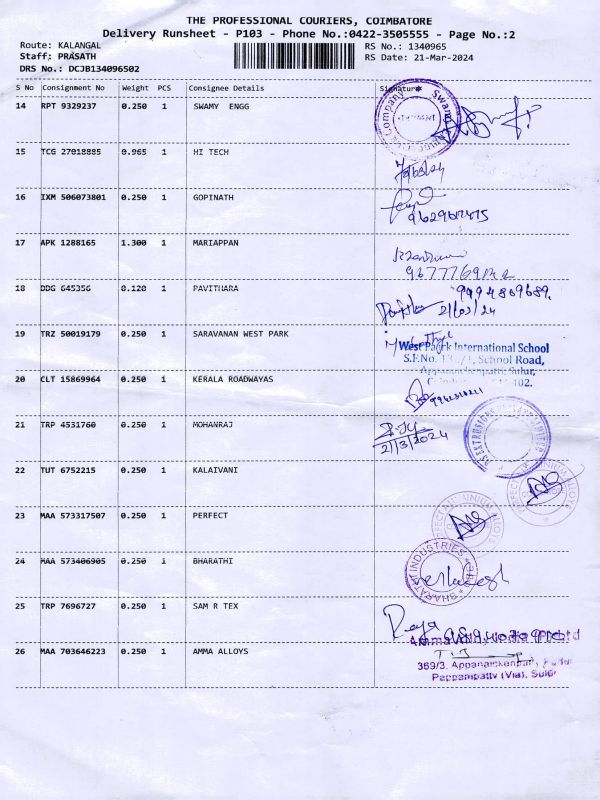 THE PROFESSIONAL COURIERS, COIMBATORE
Delivery Runsheet - P103 - Phone No.:0422-3505555 - Page No.:2
Route: KALANGAL
RS No.: 1340965
Staff: PRASATH
RS Date: 21-Mar-2024
DRS No.: DCJB134096502
S No Consignment No Weight PCS Consignee Details Signature
14 RPT 9329237 0.250 1 SWAMY ENGG
15 TCG 27018885 0.965 1 HI TECH
16 IXM 506073801 0.250 1 GOPINATH
17 APK 1288165 1.300 1 MARIAPPAN
18 DDG 645356 0.120 1 PAVITHARA
21/02/24
19 TRZ 50019179 0.250 1 SARAVANAN WEST PARK
West Park International School
S.F.No. School Road,
Sulur,
402.
20 CLT 15869964 0.250 1 KERALA ROADWAYAS
21 TRP 4531760 0.250 1 MOHANRAJ
21/3/2024
22 TUT 6752215 0.250 1 KALAIVANI
23 MAA 573317507 0.250 1 PERFECT
24 MAA 573406905 0.250 1 BHARATHI
BHARATHI INDUSTRIES
25 TRP 7696727 0.250 1 SAM R TEX
Raja
26 MAA 703646223 0.250 1 AMMA ALLOYS
369/3,
Pappampatty (Via), Sulur